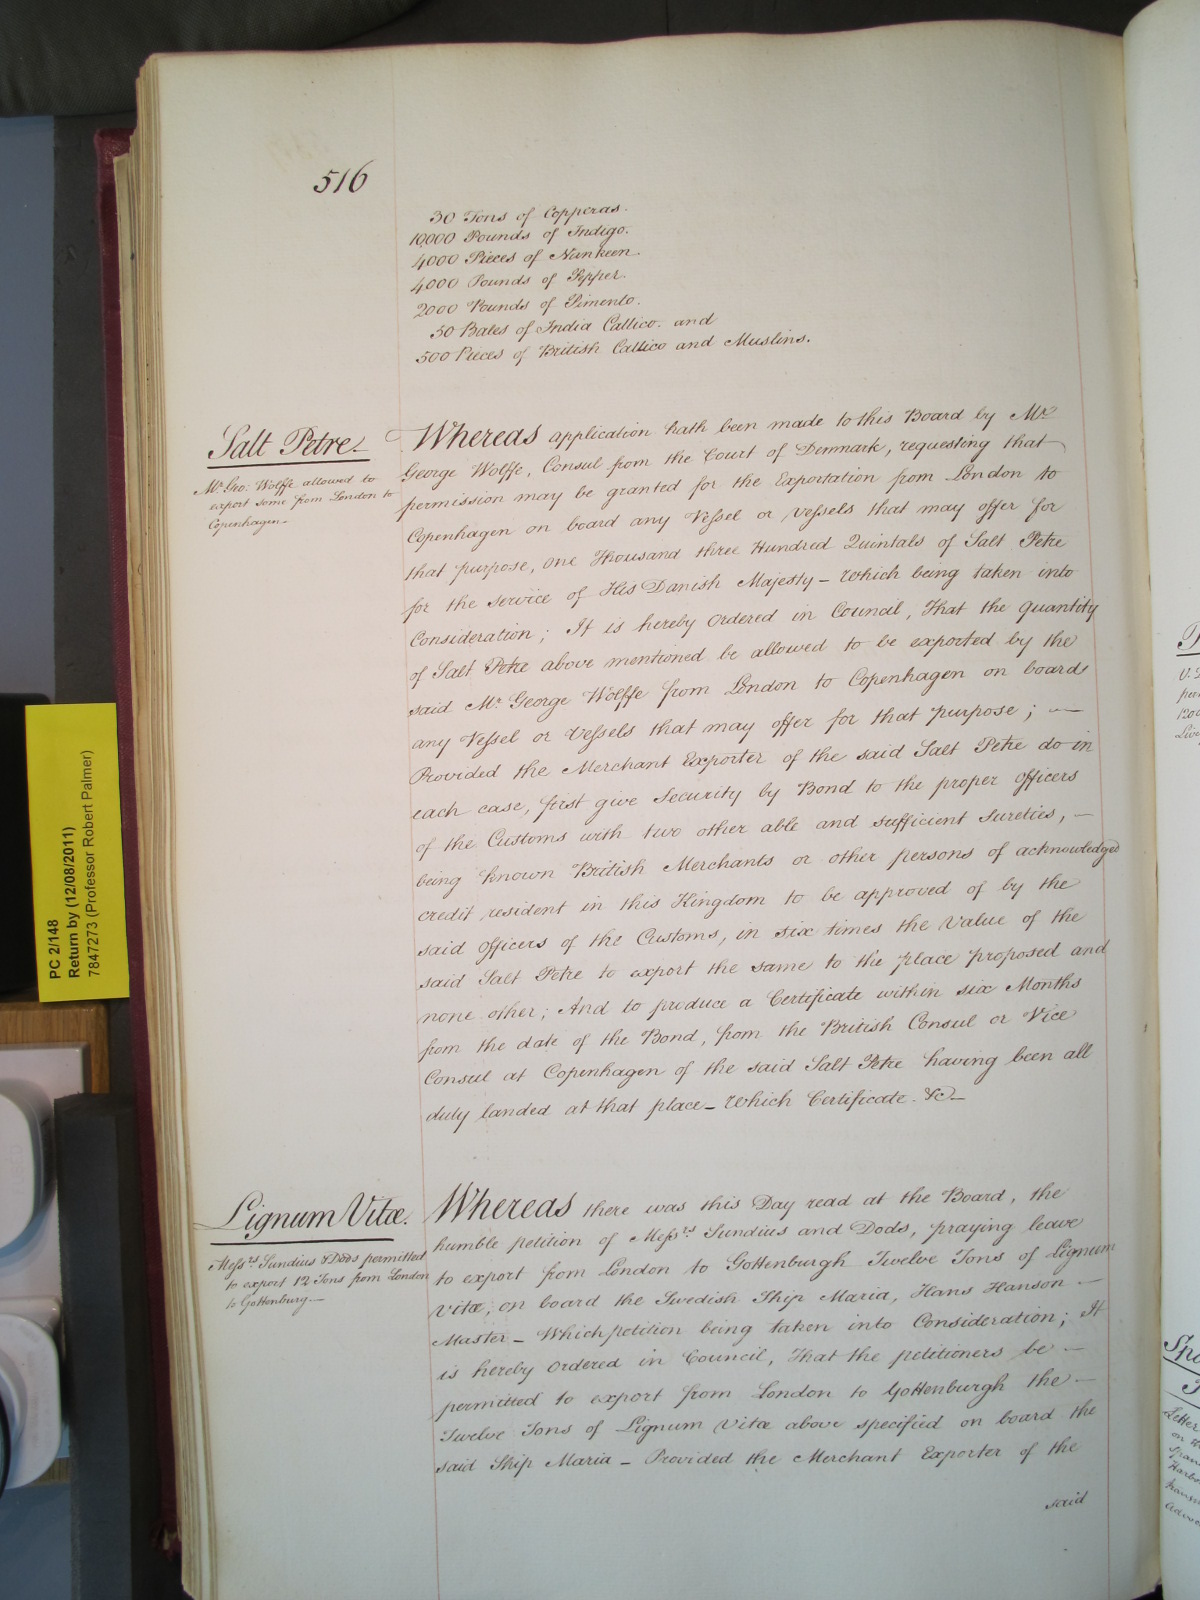 516
30 Tons of Copperas.
10,000 Pounds of Indigo.
4000 Pieces of Nankeen.
4000 Pounds of Pepper.
2000 Pounds of Pimento.
50 Bales of India Callico. and
500 Pieces of British Callico and Muslins.
Salt Petre.
Mr. Geo: Wolffe allowed to
export some from London to
Copenhagen.
Whereas application hath been made to this Board by Mr.
George Wolffe, Consul from the Court of Denmark, requesting that
permission may be granted for the Exportation from London to
Copenhagen on board any Vessel or vessels that may offer for
that purpose, one Thousand three Hundred Quintals of Salt Petre
for the service of His Danish Majesty – Which being taken into
Consideration; It is hereby Ordered in Council, That the quantity
of Salt Petre above mentioned be allowed to be exported by the
said Mr. George Wolffe from London to Copenhagen on board
any Vessel or Vessels that may offer for that purpose; —
Provided the Merchant Exporter of the said Salt Petre do in
each case, first give Security by Bond to the proper Officers
of the Customs with two other able and sufficient Sureties, —
being known British Merchants or other persons of acknowledged
credit resident in this Kingdom to be approved of by the
said Officers of the Customs, in six times the Value of the
said Salt Petre to export the same to the place proposed and
none other; And to produce a Certificate within six Months
from the date of the Bond, from the British Consul or Vice
Consul at Copenhagen of the said Salt Petre having been all
duly landed at that place – Which Certificate. &c —
Lignum Vitæ.
Messrs. Sundius & Dods permitted
to export 12 Tons from London
to Gottenburg. —
Whereas there was this Day read at the Board, the
humble petition of Messrs. Sundius and Dods, praying leave
to export from London to Gottenburgh Twelve Tons of Lignum
Vitæ, on board the Swedish Ship Maria, Hans Hanson —
Master – Which petition being taken into Consideration; It
is hereby Ordered in Council, That the petitioners be —
permitted to export from London to Gottenburgh the —
Twelve Tons of Lignum Vitæ above specified on board the
said Ship Maria – Provided the Merchant Exporter of the
said
PC 2/148
Return by (12/08/2011)
7847273 (Professor Robert Palmer)